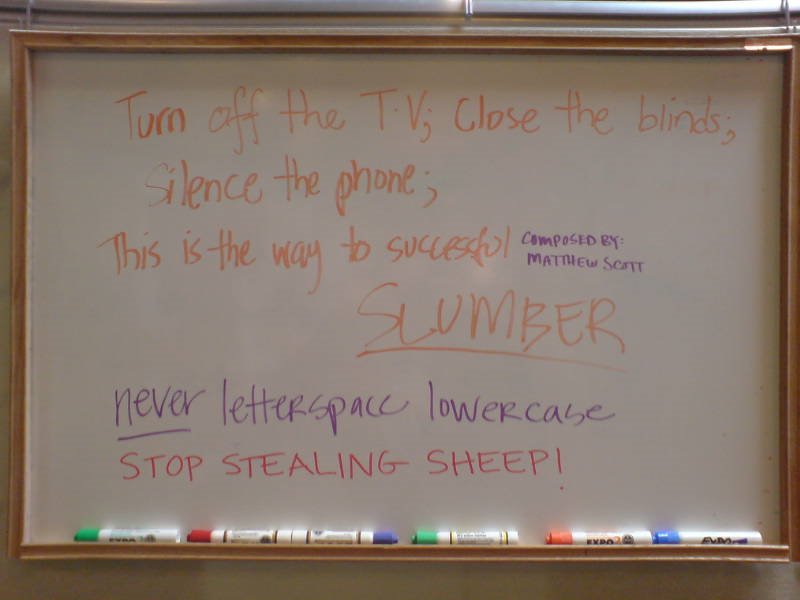 Turn off the T.V; Close the blinds;
Silence the phone;
This is the way to successful
COMPOSED BY:
MATTHEW SCOTT
SLUMBER
never letterspace lowercase
STOP STEALING SHEEP!
EXPO
EXPO
EXPO